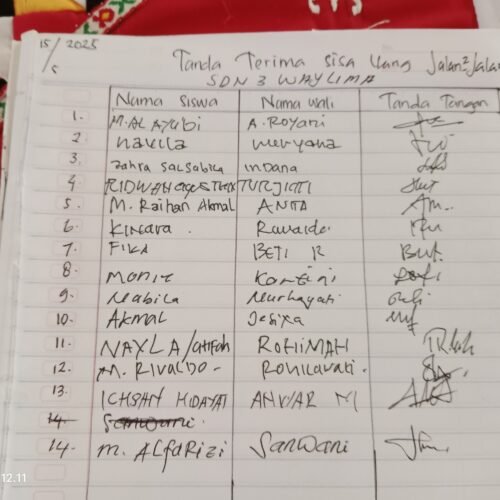 15/5 2025
Tanda Terima sisa Uang Jalan²/Jalan
SDN 3 WAYLIMA
Nama siswa Nama wali Tanda Tangan
1. M. AL AYUBI A. Royani
2 navila meryana
3. zahra salsabila indana
4 RIDWAN TURJIATI
5. M. Raihan Akmal ANITA
6. Kinvara
7. FIKA BETI R
8
9. Nabila Nurhayati
10. Akmal Jesixa
11. NAYLA/atifah ROHIMAH
12. M. RIVALDO - Rohilawati.
13. ICHSAN HIDAYAT ANWAR M
14. Sarwani.
14. M. ALFARIZI SARWANI
12.11